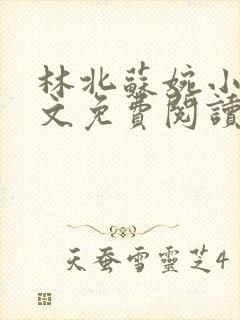 林北蘇婉小
文免費閱讀
天蚕雪靈芝4